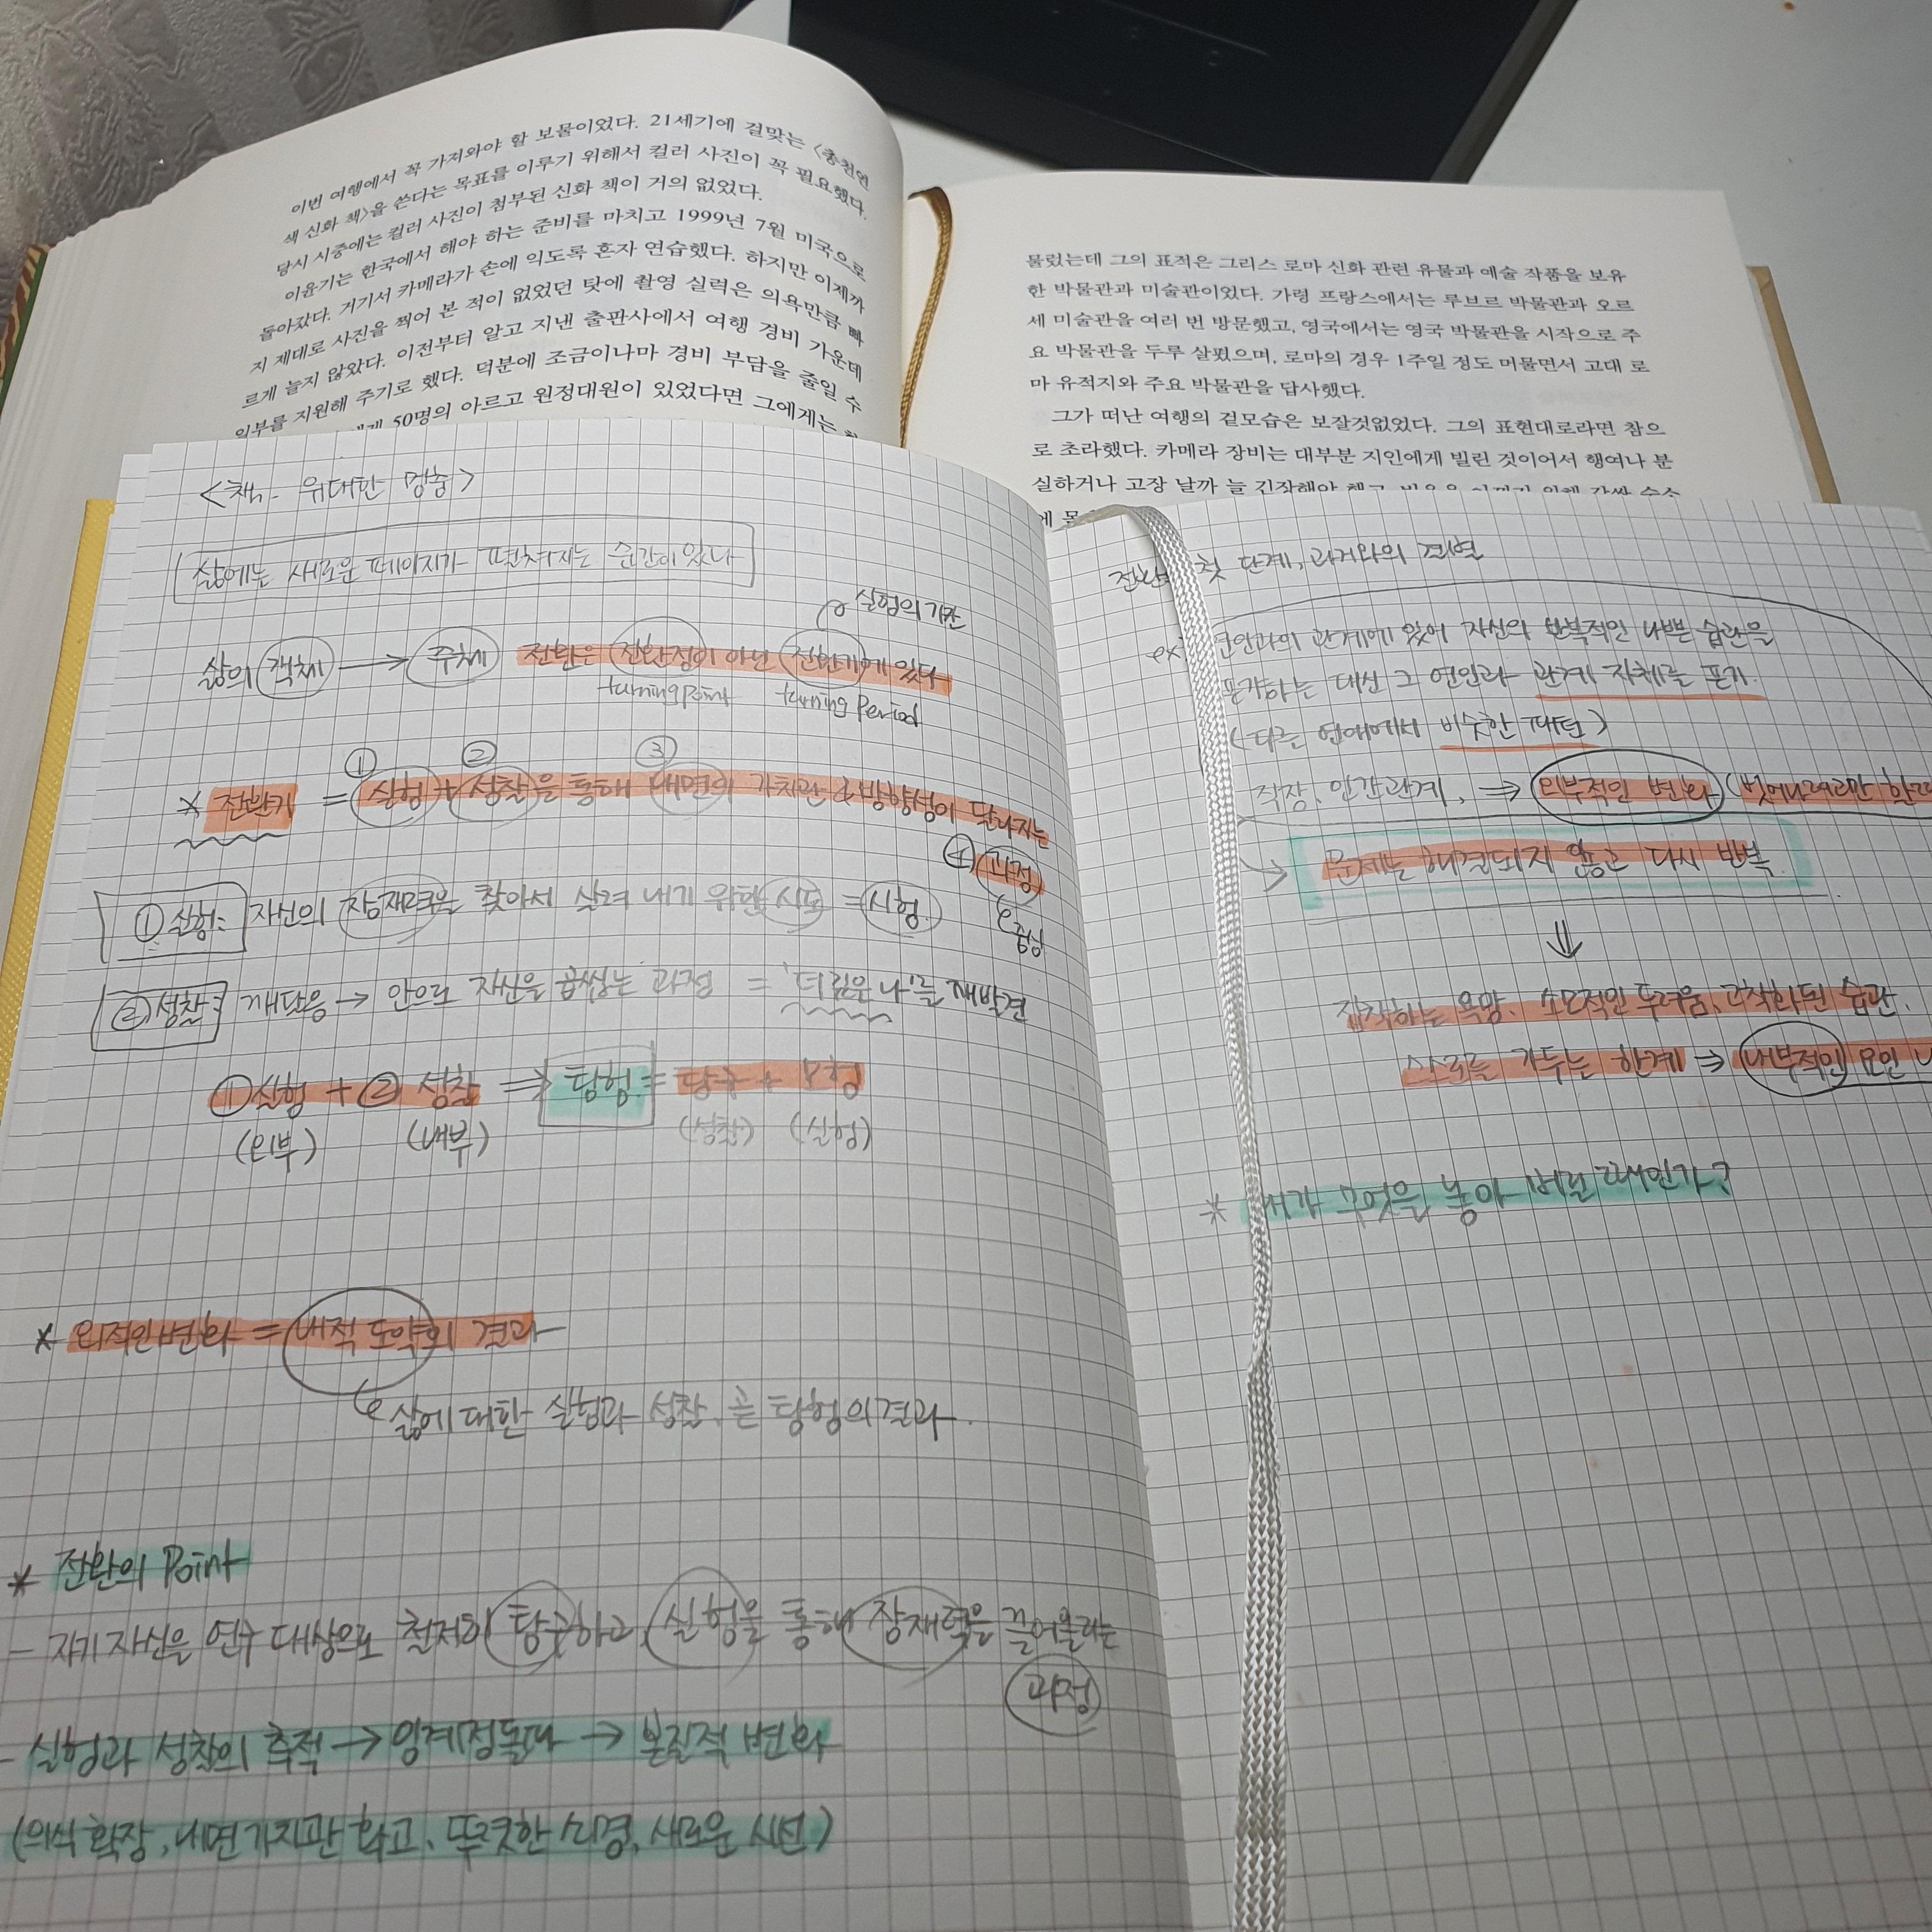 이번 여행에서 꼭 가져와야 할 보물이었다. 21세기에 걸맞는 〈총천연
색 신화 책〉을 쓴다는 목표를 이루기 위해서 컬러 사진이 꼭 필요했다.
당시 시중에는 컬러 사진이 첨부된 신화 책이 거의 없었다.
이윤기는 한국에서 해야 하는 준비를 마치고 1999년 7월 미국으로
돌아갔다. 거기서 카메라가 손에 익도록 혼자 연습했다. 하지만 이제까
지 제대로 사진을 찍어 본 적이 없었던 탓에 촬영 실력은 의욕만큼 빠
르게 늘지 않았다. 이전부터 알고 지낸 출판사에서 여행 경비 가운데
일부를 지원해 주기로 했다. 덕분에 조금이나마 경비 부담을 줄일 수
50명의 아르고 원정대원이 있었다면 그에게는
물렀는데 그의 표적은 그리스 로마 신화 관련 유물과 예술 작품을 보유
한 박물관과 미술관이었다. 가령 프랑스에서는 루브르 박물관과 오르
세 미술관을 여러 번 방문했고, 영국에서는 영국 박물관을 시작으로 주
요 박물관을 두루 살폈으며, 로마의 경우 1주일 정도 머물면서 고대 로
마 유적지와 주요 박물관을 답사했다.
그가 떠난 여행의 겉모습은 보잘것없었다. 그의 표현대로라면 참으
로 초라했다. 카메라 장비는 대부분 지인에게 빌린 것이어서 행여나 분
실하거나 고장 날까 늘 긴장해야 했고,
<책 - 위대한 멈춤>
삶에는 새로운 페이지가 펼쳐지는 순간이 있다
실험의 기간
삶의 객체 → 주체 전환은 전환점이 아닌 전환기에 있다
turning point turning period
① ② ③
* 전환기 = 실험 + 성찰을 통해 내면의 가치관 & 방향성이 달라지는
④ 과정
중심
① 실험: 자신의 잠재력을 찾아서 실현해 내기 위한 시도 = 시험
② 성찰: 깨달음 → 안으로 자신을 곱씹는 과정 = '더 깊은 나'를 재발견
① 실험 + ② 성찰 ⇒ 탐험 = 탐구 + 모험
(외부) (내부) (성찰) (실험)
* 외적인 변화 = 내적 도약의 결과
삶에 대한 실험과 성찰, 곧 탐험의 결과.
* 전환의 Point
- 자기 자신을 연구 대상으로 철저히 탐구하고, 실험을 통해 잠재력을 끌어올리는
과정
- 실험과 성찰의 축적 → 임계점 돌파 → 본질적 변화
(의식 확장, 내면 가치관 확고, 뚜렷한 소명, 새로운 시선)
첫 단계, 과거와의 결별
ex) 연인과의 관계에 있어 자신의 반복적인 나쁜 습관을
포기하는 대신 그 연인과 관계 자체를 포기.
(다른 연애에서 비슷한 패턴)
직장, 인간관계, ⇒ 외부적인 변화 (벗어나려고만 한다
→ 문제는 해결되지 않고 다시 반복.
⇓
집착하는 욕망, 소모적인 두려움, 고착화된 습관.
스스로를 가두는 한계 ⇒ 내부적인 요인
* 내가 무엇을 놓아 버릴 때인가?